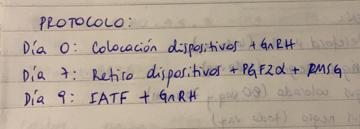 PROTOCOLO:
Día 0: Colocación dispositivos + GnRH
Día 7: Retiro dispositivos + PGF2α + PMSG
Día 9: IATF + GnRH